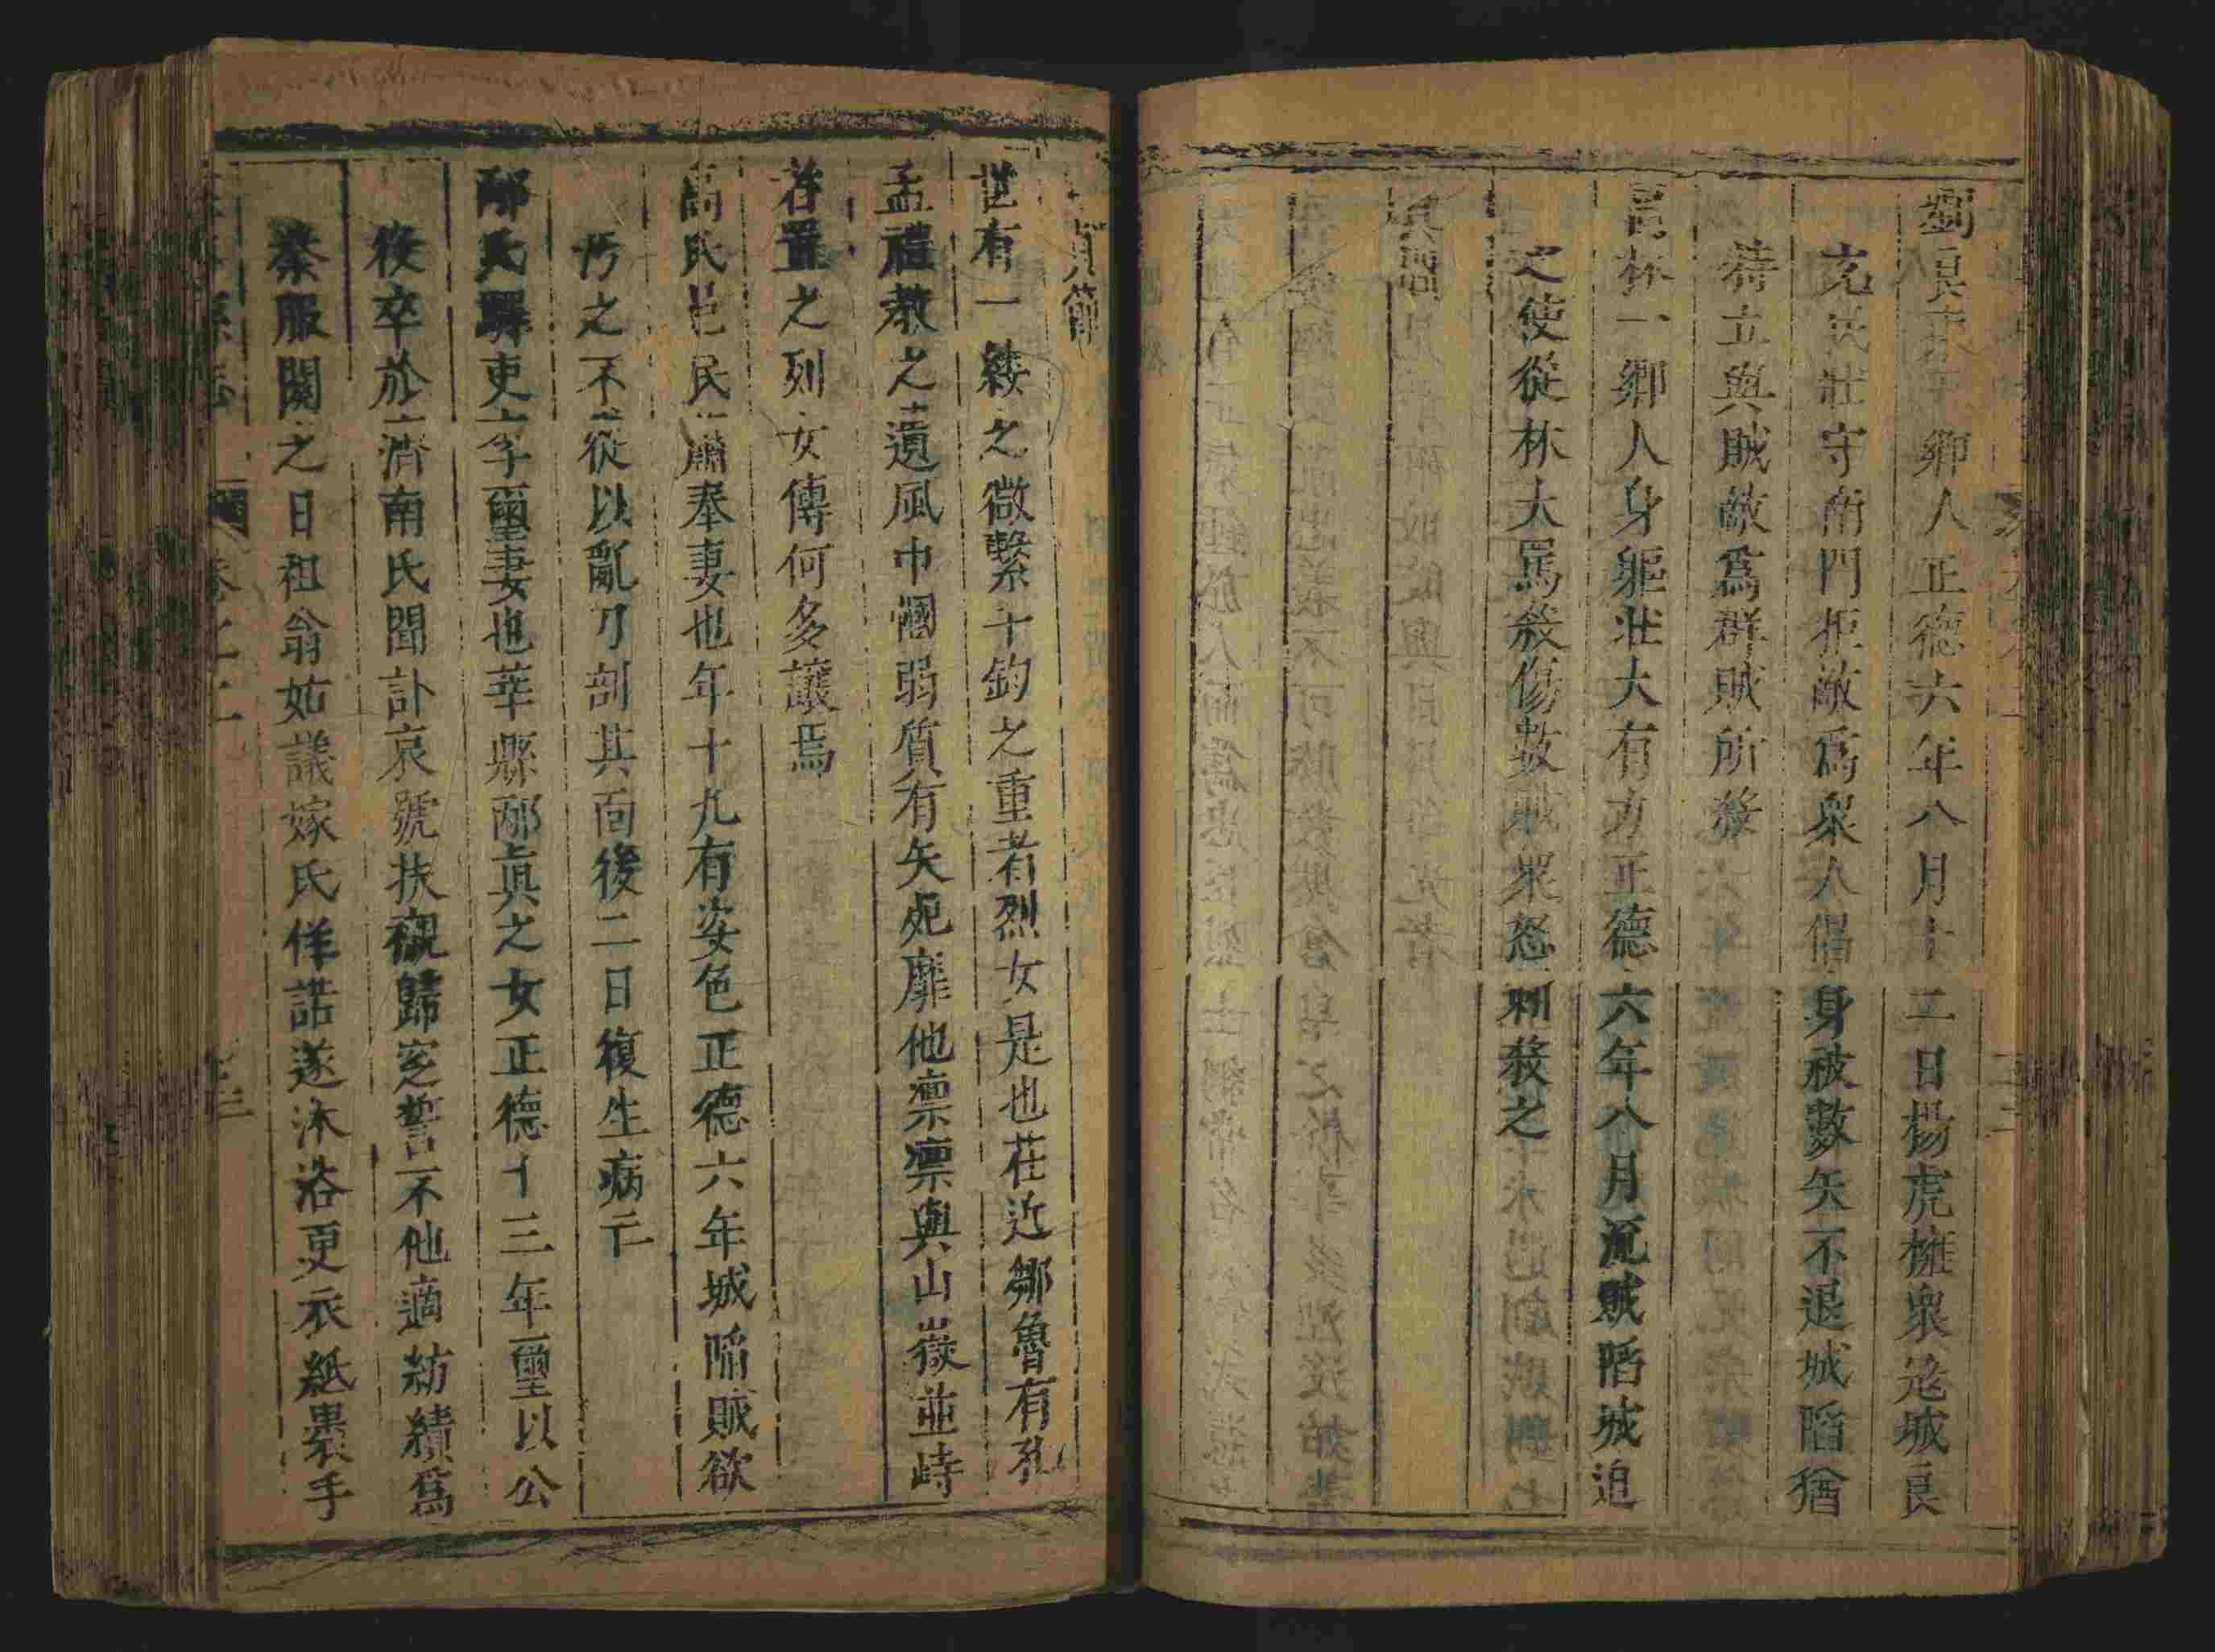 劉良 鄉人正德六年八月十二日楊虎擁衆迯城良
充民壯守南門拒敵爲衆人倡身被數矢不退城陷猶
持立與賊敵爲群賊所殺
林一鄉人身軀壯大有力正德六年八月流賊陷城迫
之使從林大罵殺傷數賊衆怒刺殺之
貞節
世有一綫之微繫千鈞之重者烈女是也茌近鄒魯有孔
孟禮敎之遺風巾幗弱質有矢死靡他凛凛與山嶽並峙
者置之列女傳何多讓焉
高氏邑民蕭奉妻也年十九有姿色正德六年城陷賊欲
污之不從以亂刀剖其面後二日復生病亡
邴氏驛吏李璽妻也莘縣邴真之女正德十三年璽以公
役卒於濟南氏聞訃哀號扶櫬歸窆誓不他適紡績爲
養服闋之日祖翁姑議嫁氏佯諾遂沐浴更衣紙裹手
卷之二